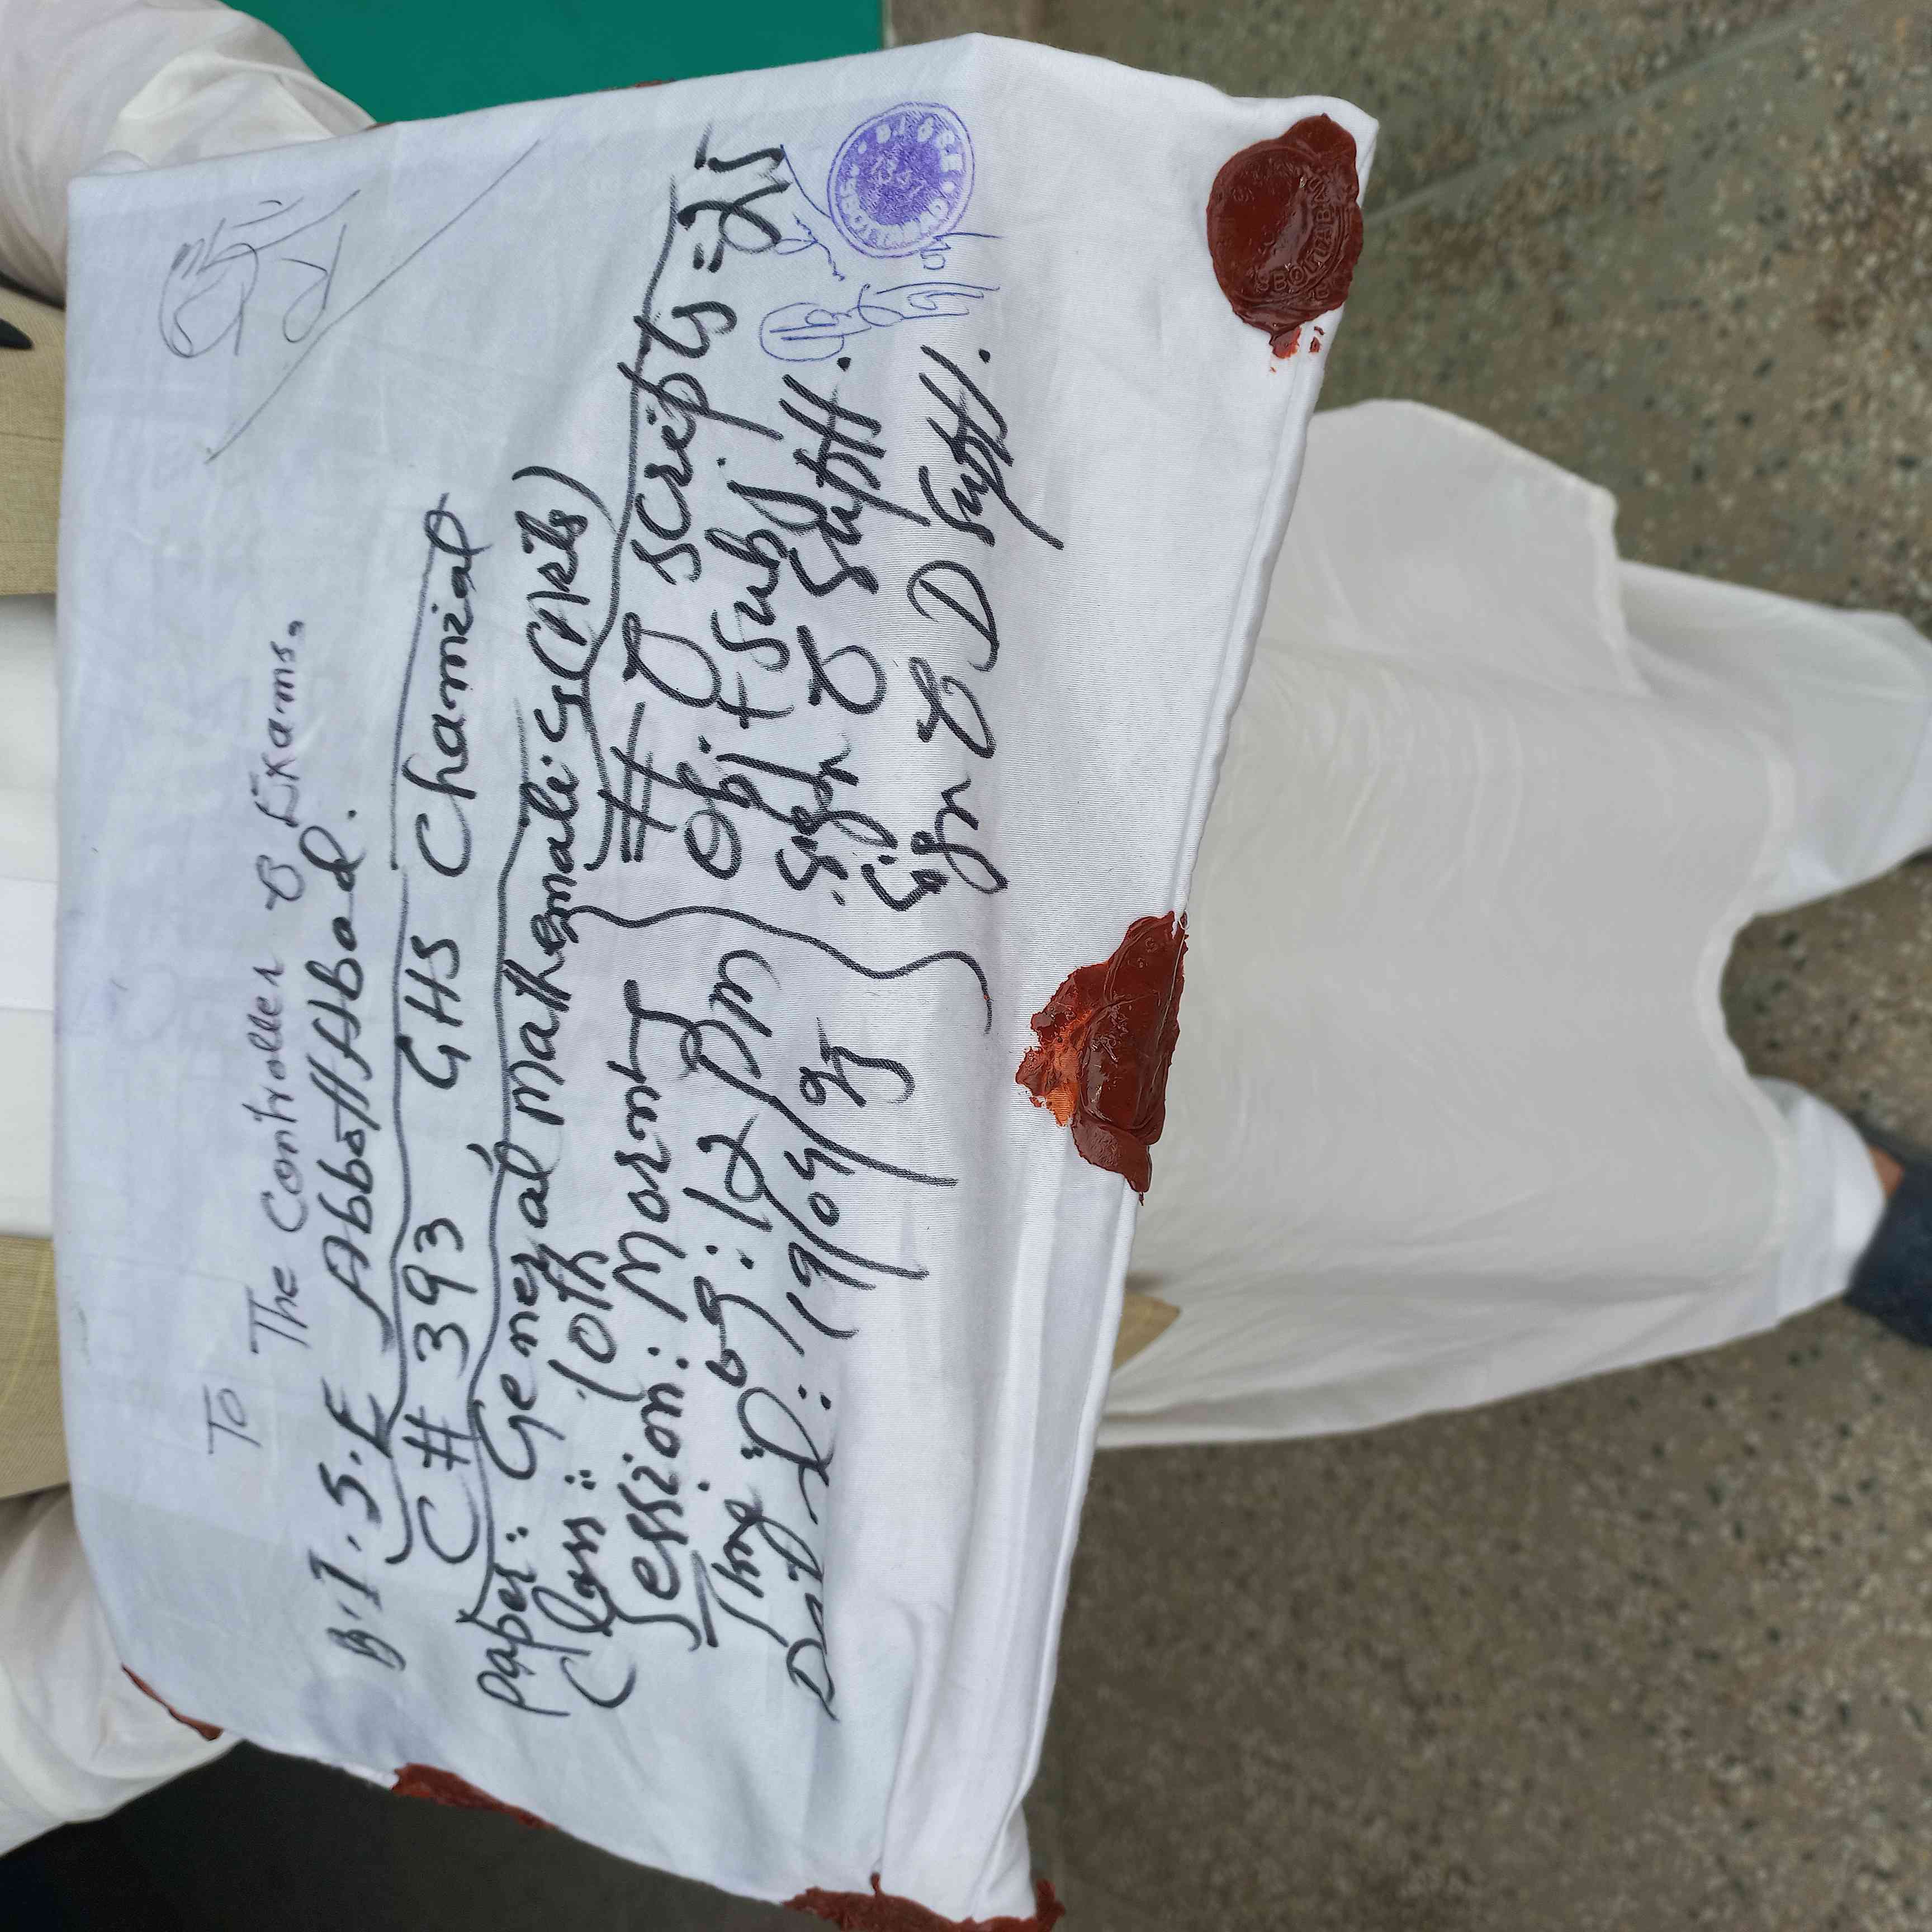 To
The Controller of Exams.
B.I.S.E Abbottabad.
C# 393 GHS Chamial
Paper: General Mathematics (Arts)
Class: 10th
Session: Morning
Time: 09:12 PM
Dated: 19/04/25
# of scripts = 25
Obj + Subj
Sign of Suptt.
Sign of D Suptt.